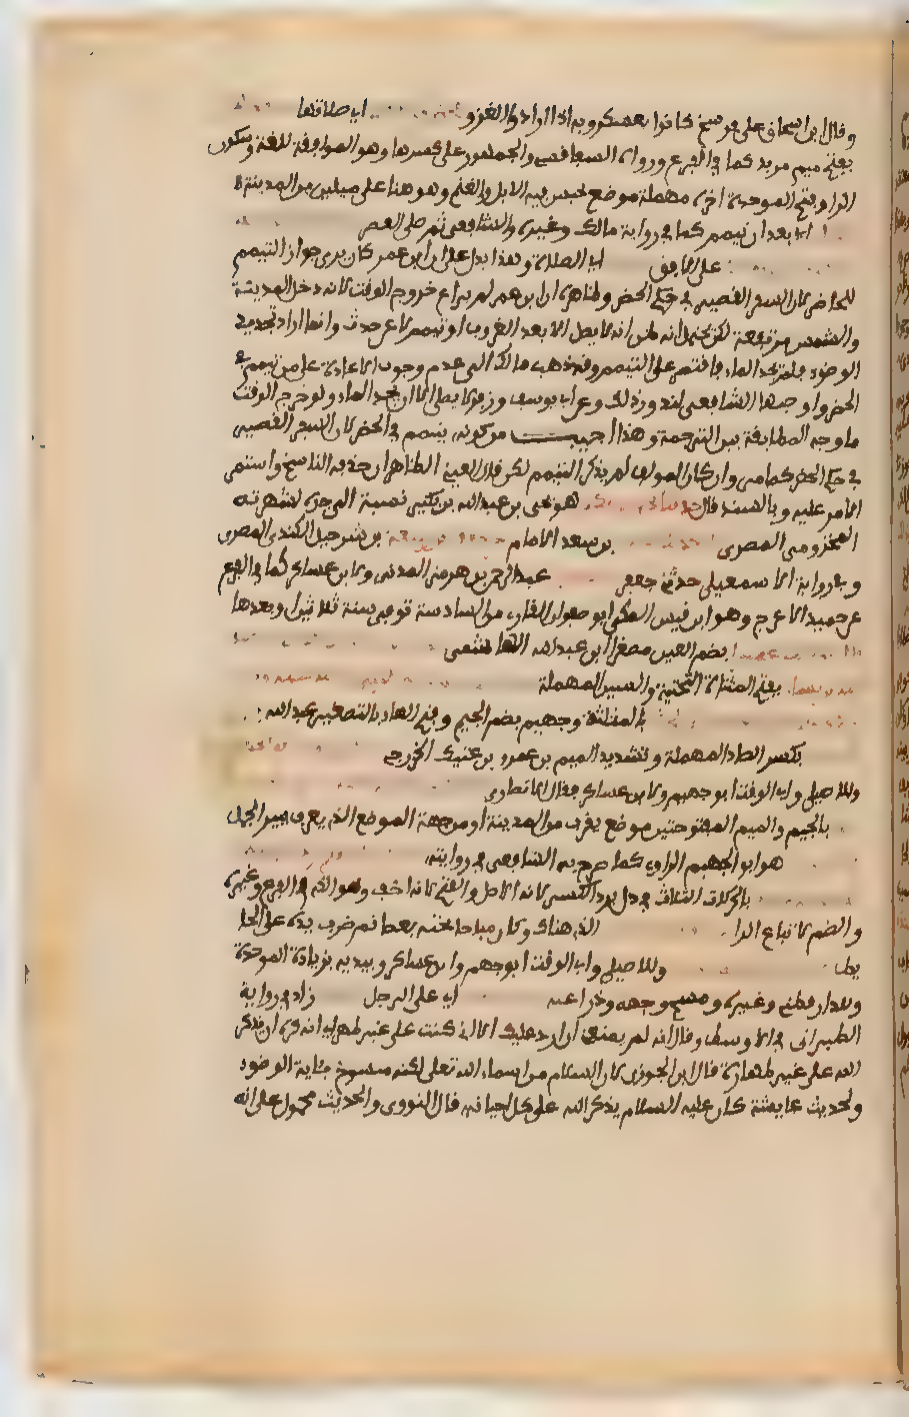 وقال ابن اسحاق على فرسخ كانوا يعسكرون به اذا ارادوا الغزو اي صلاتها
بفتح ميم مربد كما في الفرع ورواه السفاقسي والجمهور على كسرها وهو الموافق للغة وسكون
الرا وفتح الموحدة اخره مهملة موضع تحبس فيه الابل والغنم وهو هنا على ميلين من المدينة
اي بعد ان تيمم كما في رواية مالك وغيره وللشافعي ثم صلى العصر
عن الافق اي الصلاة وهذا يدل على ان ابن عمر كان يرى جواز التيمم
للحاضر لان السفر القصير في حكم الحضر وظاهره ان ابن عمر لم يراع خروج الوقت لانه دخل المدينة
والشمس مرتفعة لكن يحتمل انه ظن انه لا يصل الا بعد الغروب او تيمم لا عن حدث وانما اراد تجديد
الوضوء فلم يجد الماء فاقتصر على التيمم وقد ذهب مالك الى عدم وجوب الاعادة على من تيمم في
الحضر واوجبها الشافعي لندور ذلك وعن ابي يوسف وزفر لا يصلي الا ان يجد الماء ولو خرج الوقت
ما وجه المطابقة بين الترجمة وهذا اجيب من كونه تيمم في الحضر لان السفر القصير
في حكم الحضر كما مر وان كان المولف لم يذكر التيمم لكن قال العيني الظاهر ان حذفه الناسخ واستمر
الامر عليه وبالسند قال هو يحيى بن عبد الله بن بكير نسبة الى جده لشهرته
المخزومي المصري بن سعد الامام بن شرحبيل الكندي المصري
وفي رواية الاسمعيلي حدثني جعفر عبد الرحمن بن هرمز المدني ولابن عساكر كما في الفرع
عن حميد الاعرج وهو ابن قيس المكي ابو صفوان القارى من السادسة توفي سنة ثلاثين او بعدها
بضم العين مصغرا ابن عبد الله الهاشمي
بفتح المثناة التحتية والسين المهملة
بالمثلثة وجهيم بضم الجيم وفتح الهاء بالتصغير عبد الله
بكسر الصاد المهملة وتشديد الميم بن عمرو بن عتيك الخزرجي
وللاصيلي وابي الوقت ابو جهيم ولابن عساكر فقال الانصاري
بالجيم والميم المفتوحتين موضع بقرب من المدينة اي من جهة الموضع الذي يعرف ببير الجمل
هو ابو الجهيم الراوي كما صرح به الشافعي في روايته
بالحركات الثلاث في دال يرد الكسر لانه الاصل والفتح لانه اخف وهو الذي في الفرع وغيره
والضم لاتباع الرا الذي هناك وكان مباحا فحته بعصا ثم ضرب يده على الحا
يط وللاصيلي وابي الوقت ابو جهيم وابن عساكر وبيديه بزيادة الموحدة
وللدارقطني وغيره ومسح وجهه وذراعيه اي على الرجل زاد في رواية
الطبراني في الاوسط وقال انه لم يمنعني ان ارد عليك الا اني كنت على غير طهر اي انه كره ان يذكر
الله على غير طهارة قال ابن الجوزي لان السلام من اسماء الله تعلى لكنه منسوخ باية الوضوء
ولحديث عايشة كان عليه السلام يذكر الله على كل احيانه قال النووي والحديث محمول على انه